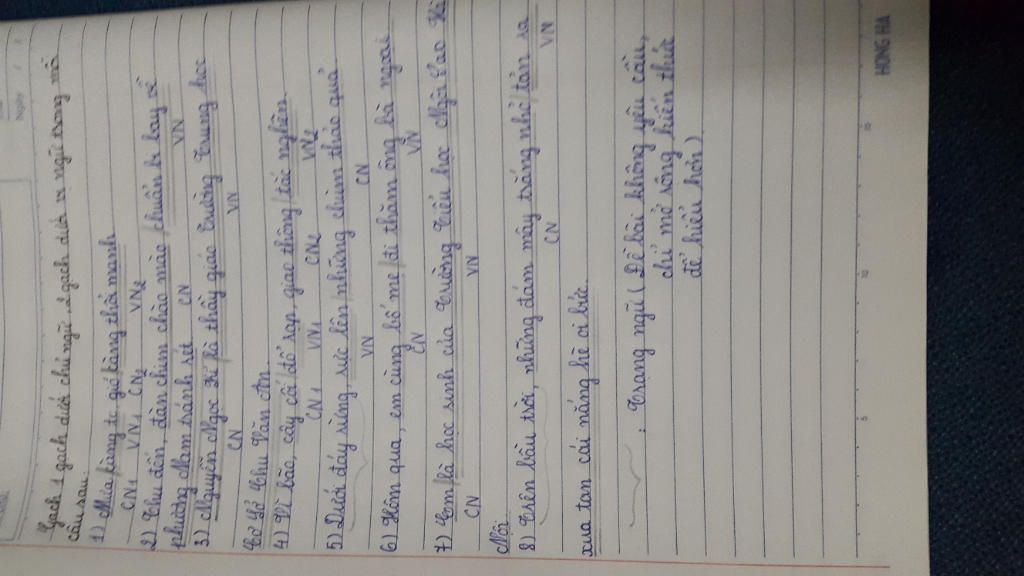 Ngày
Gạch 1 gạch dưới chủ ngữ, 2 gạch dưới vị ngữ trong mỗi
câu sau.
1) Mưa / càng to, gió / càng thổi mạnh
CN1 VN1 CN2 VN2
2) Thu đến, đàn chim chào mào / chuẩn bị bay về
phương Nam tránh rét CN VN
3) Nguyễn Ngọc Kí / là thầy giáo trường Trung học
CN VN
Cơ sở Chu Văn An.
4) Vì bão, cây cối / đổ rạp, giao thông / tắc nghẽn.
CN1 VN1 CN2 VN2
5) Dưới đáy rừng, rực lên / những chùm thảo quả
VN CN
6) Hôm qua, em cùng bố mẹ / đi thăm ông bà ngoại
CN VN
7) Em / là học sinh của trường tiểu học Ngôi Sao Hà
CN VN
Nội.
8) Trên bầu trời, những đám mây trắng nhỏ / tản ra
CN VN
xua tan cái nắng hè oi bức.
: Trạng ngữ (Đề bài không yêu cầu,
chỉ mở rộng kiến thức
để hiểu hơn)
HONG HA
5
10